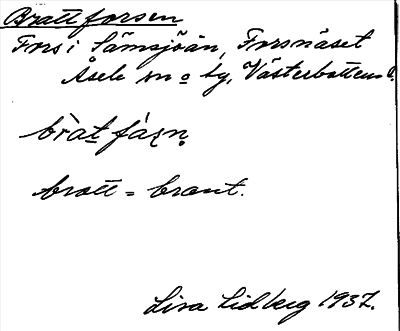 Brattforsen
Fors i Sämsjöån, Forsnäset
Åsele sn o by, Västerbottens l.
bratt = brant.
Lisa Lidberg 1937.